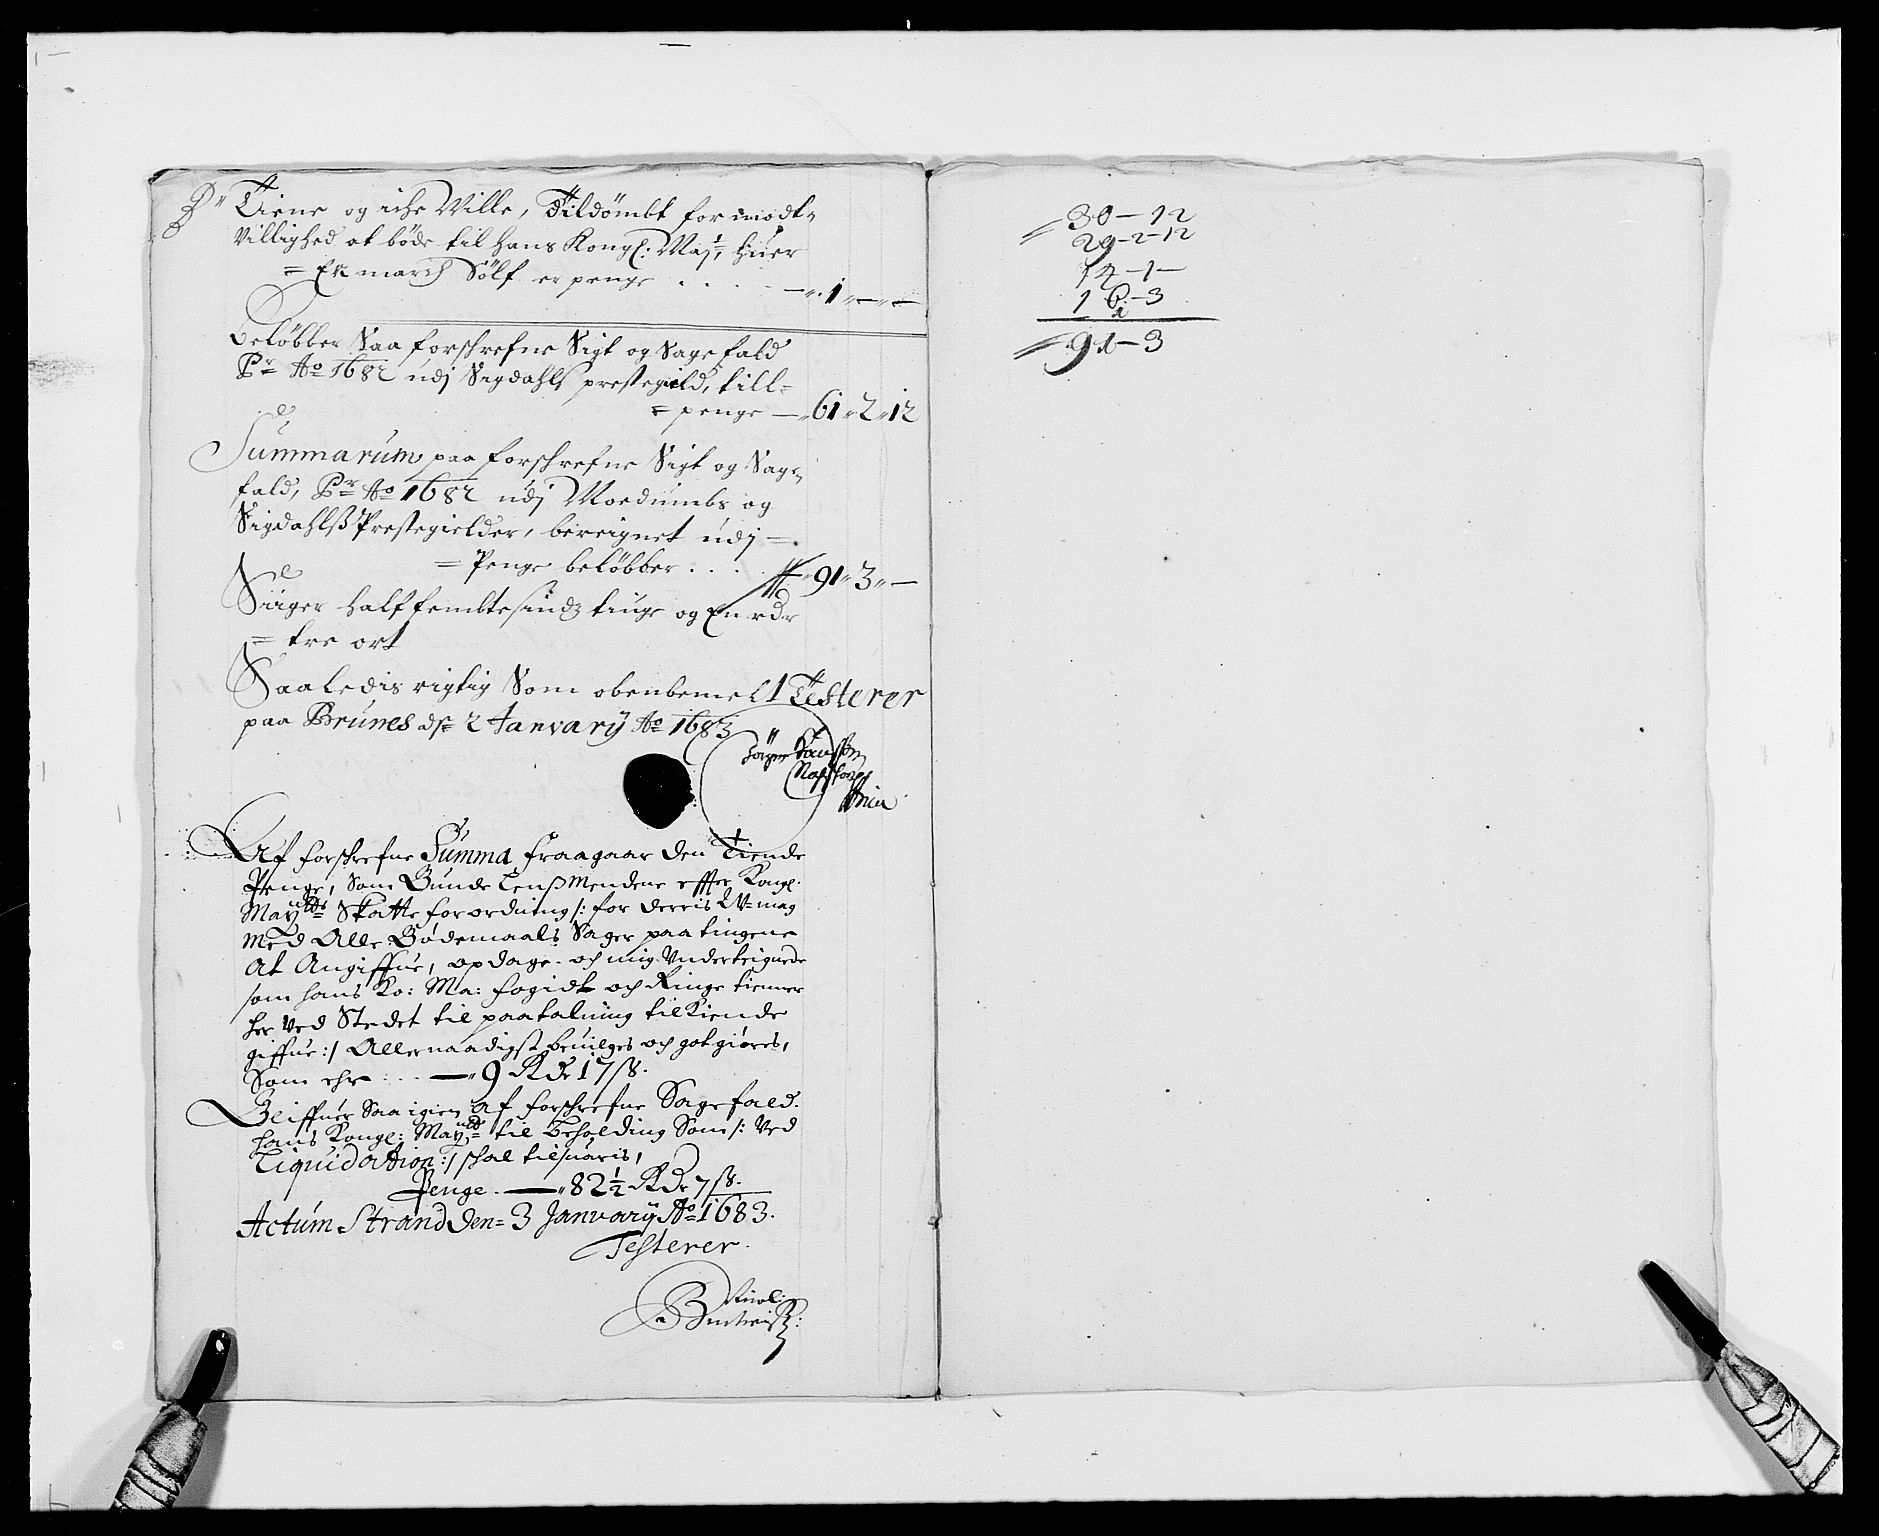 Tiene og iche Ville, Tildömbt for modt-
villighed at böde til hans Kongl: Maj:t, huer
= En march Sölf er penge . . . . — 1 „ — „ —
Belöbber Saa forschrefne Sigt og Sagefald
Pr Ao 1682 udj Sigdahls prestegield, till-
= penge — 61 „ 2 „ 12
Summarum paa forschrefne Sigt og Sage
fald, Pr Ao 1682 udj Moedumbs og
Sigdahlß Prestegielder, bereignet udj —
= Penge belöbber . . . 91 „ 3 „ —
Siiger halffembtesindz tiuge og En rdr
= tre ort
Saaledis rigtig Som obenbemelt Testerer
paa Brunes dn 2 Januarij Ao 1683
Af forschrefne Summa fraagaar den Tiende
Penge, Som Bunde Lenßmendene effter Kongl.
Mayts Skatte forordning /: for derris V-mag
med Alle Bödemaals Sager paa tingene
At Angiffue, opdage och mig Underteignede
som hans Ko: Ma: fogidt och Ringe tienner
her ved Stedet til paatalning tilKiende
giffue :/ Allernaadigst beuilges och gotgiöres,
Som ehr . . . — 9 Rdr 17 ß.
Bliffuer Saa igien af forschrefne Sagefald.
hans Kongl: Mayts til beholding Som /: Ved
Liquidation :/ schal tilsuaris,
Penge. — 82 ½ Rdr 7 ß.
Actum Strand den 3 Januarij Ao 1683.
Testerer.
30 — 12
29 - 2 - 12
14 - 1 —
1 6 - 3
91 - 3